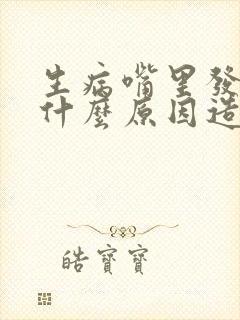 生病嘴里發
什麼原因造
皓寶寶